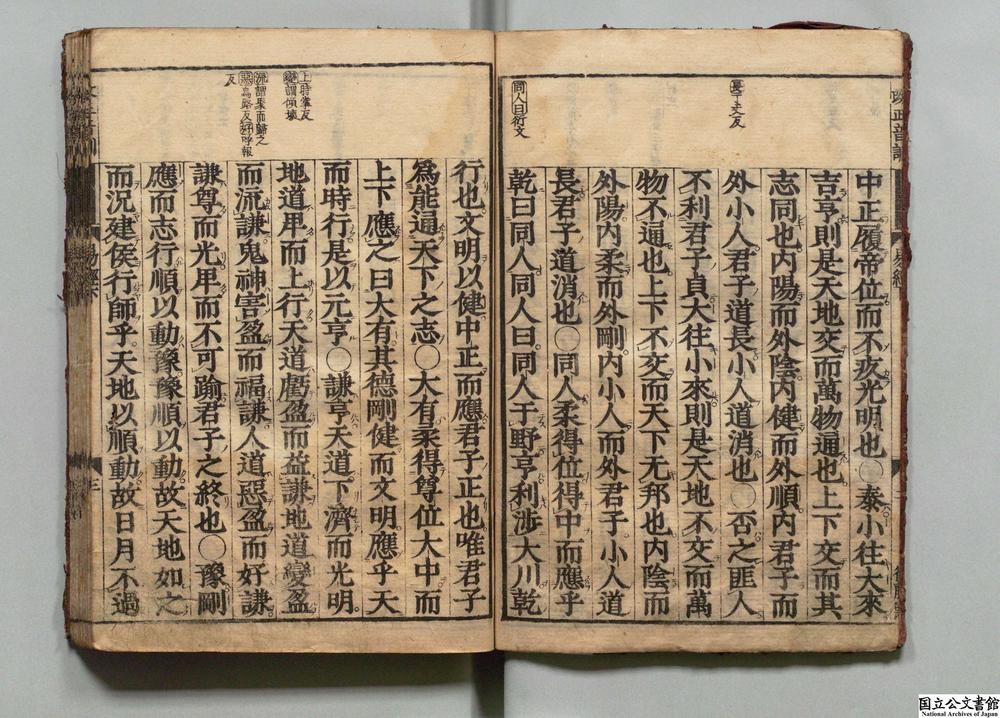 長 丈反
同人曰衍文
中正履帝位而不疚光明也○泰小往大來
吉亨則是天地交而萬物通也上下交而其
志同也內陽而外陰內健而外順內君子而
外小人君子道長小人道消也○否之匪人
不利君子貞大往小來則是天地不交而萬
物不通也上下不交而天下无邦也內陰而
外陽內柔而外剛內小人而外君子小人道
長君子道消也○同人柔得位得中而應乎
乾曰同人同人曰同人于野亨利涉大川乾
上時掌反
變謂傾壞
流謂聚而歸之
惡烏路反好呼報
反
行也文明以健中正而應君子正也唯君子
爲能通天下之志○大有柔得尊位大中而
上下應之曰大有其德剛健而文明應乎天
而時行是以元亨○謙亨天道下濟而光明
地道卑而上行天道虧盈而益謙地道變盈
而流謙鬼神害盈而福謙人道惡盈而好謙
謙尊而光卑而不可踰君子之終也○豫剛
應而志行順以動豫豫順以動故天地如之
而況建侯行師乎天地以順動故日月不過
易經
國立公文書館
National Archives of Japan